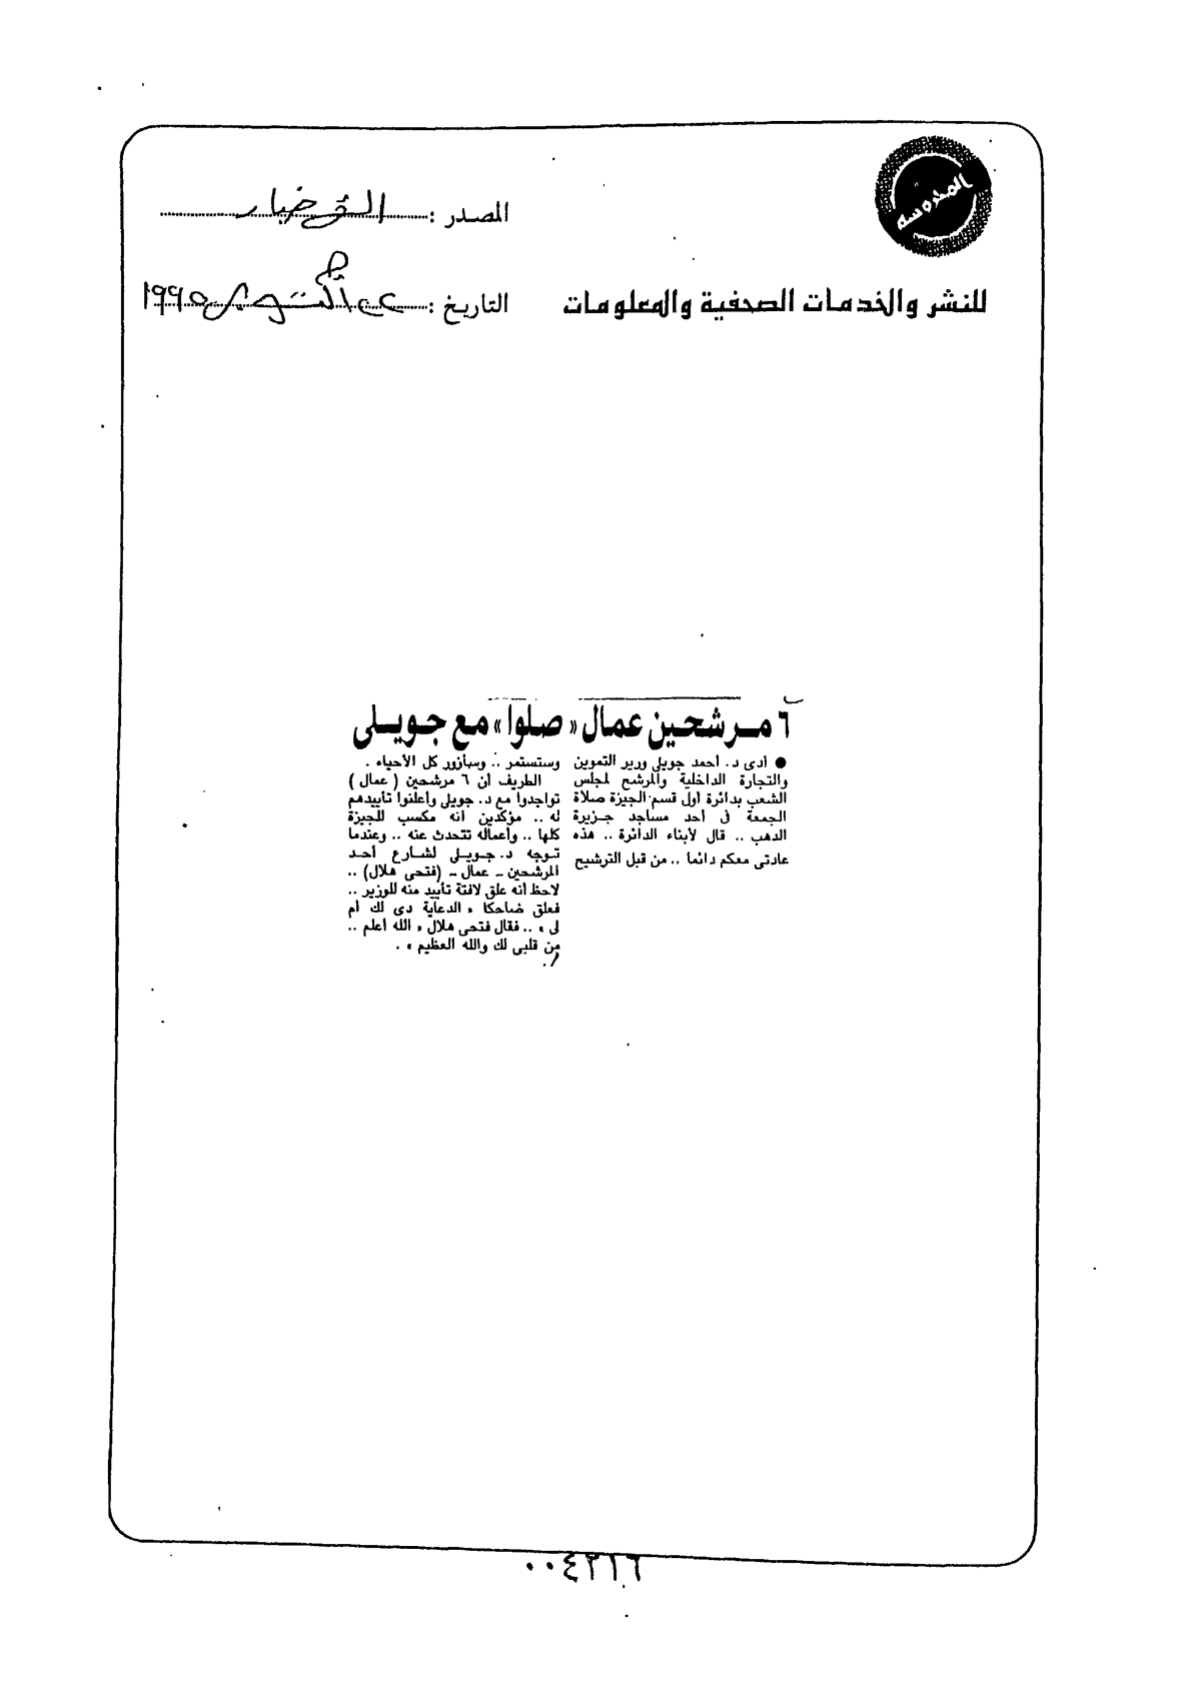 المحروسه
للنشر والخدمات الصحفية والمعلومات
المصدر : الأخبار
التاريخ : أكتوبر ١٩٩٥
٦ مرشحين عمال « صلوا » مع جويلى
● أدى د. أحمد جويلى وزير التموين
والتجارة الداخلية والمرشح لمجلس
الشعب بدائرة أول قسم الجيزة صلاة
الجمعة فى أحد مساجد جزيرة
الدهب .. قال لأبناء الدائرة .. هذه
عادتى معكم دائما .. من قبل الترشيح
وستستمر .. وسأزور كل الأحياء .
الطريف أن ٦ مرشحين ( عمال )
تواجدوا مع د. جويلى وأعلنوا تأييدهم
له .. مؤكدين أنه مكسب للجيزة
كلها .. وأعماله تتحدث عنه .. وعندما
توجه د. جويلى لشارع أحد
المرشحين - عمال - (فتحى هلال) ..
لاحظ أنه علق لافتة تأييد منه للوزير ..
فعلق ضاحكا « الدعاية دى لك أم
لى » .. فقال فتحى هلال « الله أعلم ..
من قلبى لك والله العظيم » .
٠٠٤٢١٦